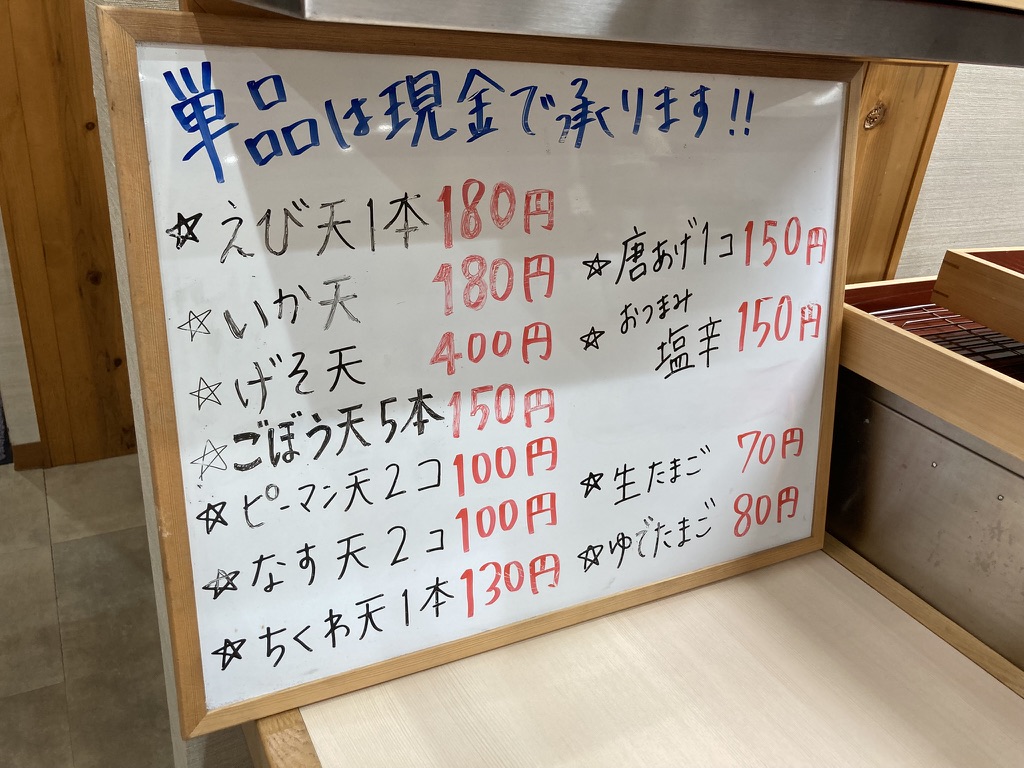 単品は現金で承ります!!
☆えび天1本 180円
☆いか天 180円
☆げそ天 400円
☆ごぼう天5本 150円
☆ピーマン天2コ 100円
☆なす天2コ 100円
☆ちくわ天1本 130円
☆唐あげ1コ 150円
☆おつまみ
塩辛 150円
☆生たまご 70円
☆ゆでたまご 80円